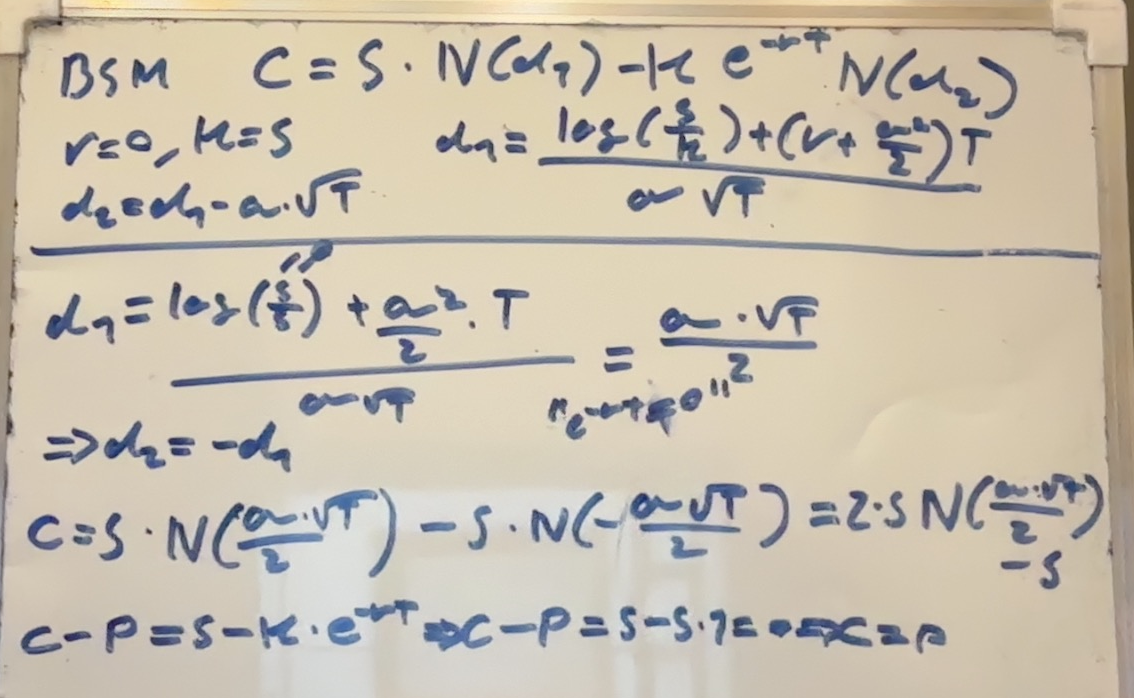 BSM C = S · N(d₁) - K e^{-rT} N(d₂)
r=0, K=S d₁ = (log(S/K) + (r + σ²/2)T) / (σ√T)
d₂ = d₁ - σ·√T
d₁ = (log(S/S) + σ²/2 · T) / (σ√T) = (σ·√T) / 2
⇒ d₂ = -d₁
C = S · N(σ·√T / 2) - S · N(-σ√T / 2) = 2·S N(σ·√T / 2) - S
C - P = S - K · e^{-rT} ⇒ C - P = S - S·1 = 0 ⇒ C = P